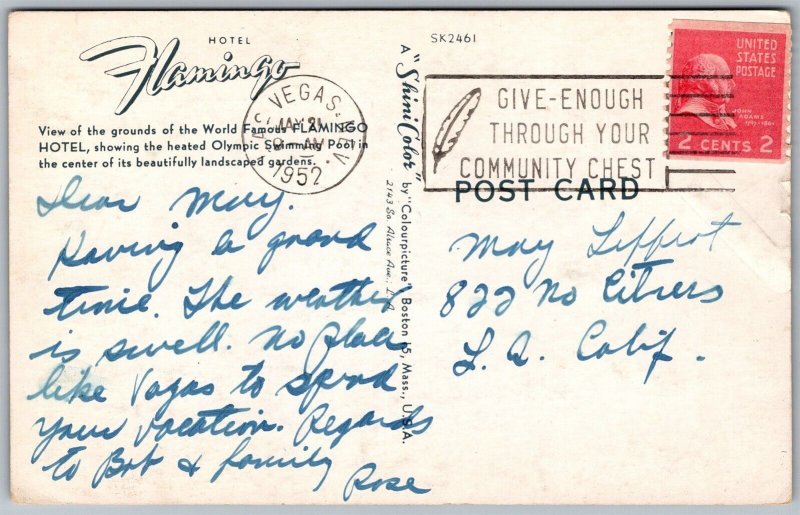 HOTEL
Flamingo
View of the grounds of the World Famous FLAMINGO
HOTEL, showing the heated Olympic Swimming Pool in
the center of its beautifully landscaped gardens.
VEGAS.
MAY 21
AM
1952
NEV.
Dear May.
Having a grand
time. The weather
is swell. No place
like Vagas to spend
your vacation. Regards
to Bob & family
Rose
SK2461
A "ShiniColor" by "Colourpicture", Boston 15, Mass., U.S.A.
2143 So.
GIVE-ENOUGH
THROUGH YOUR
COMMUNITY CHEST
UNITED
STATES
POSTAGE
JOHN
ADAMS
1797-1801
2 CENTS 2
POST CARD
May Leffert
822 No
L. A. Calif.